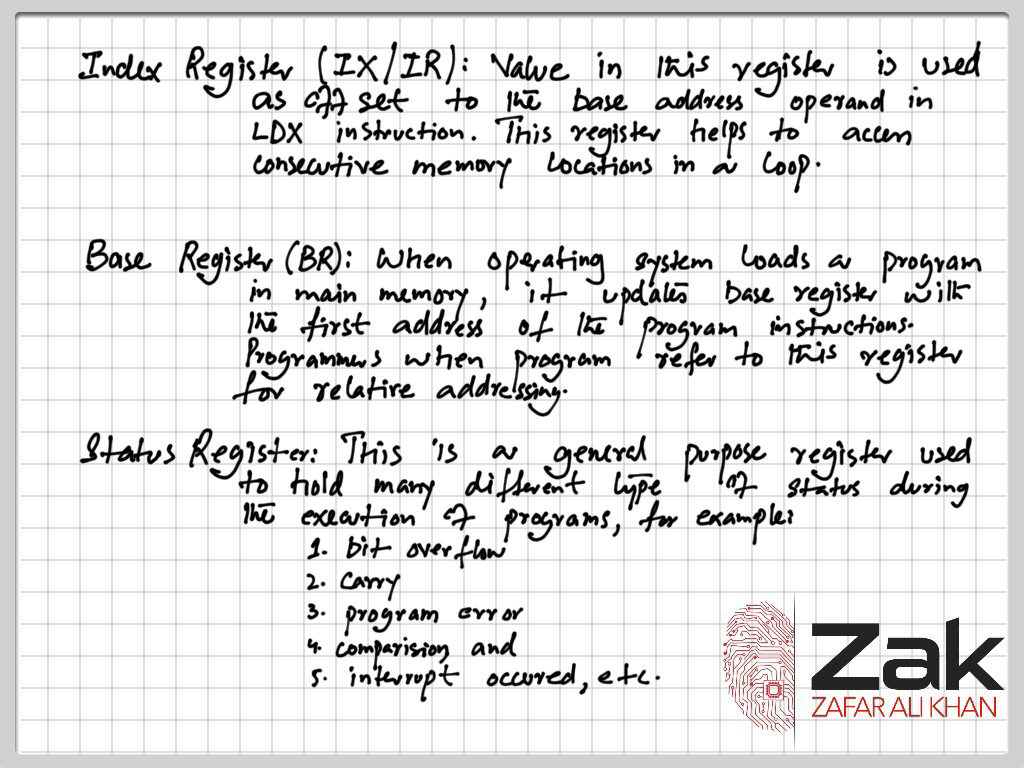 Index Register (IX/IR): Value in this register is used
as off set to the base address operand in
LDX instruction. This register helps to access
consecutive memory locations in a loop.
Base Register (BR): When operating system loads a program
in main memory, it updates base register with
the first address of the program instructions.
Programmers when program refer to this register
for relative addressing.
Status Register: This is a general purpose register used
to hold many different type of status during
the execution of programs, for example:
1. bit overflow
2. carry
3. program error
4. comparision and
5. interrupt occured, etc.
Zak
ZAFAR ALI KHAN